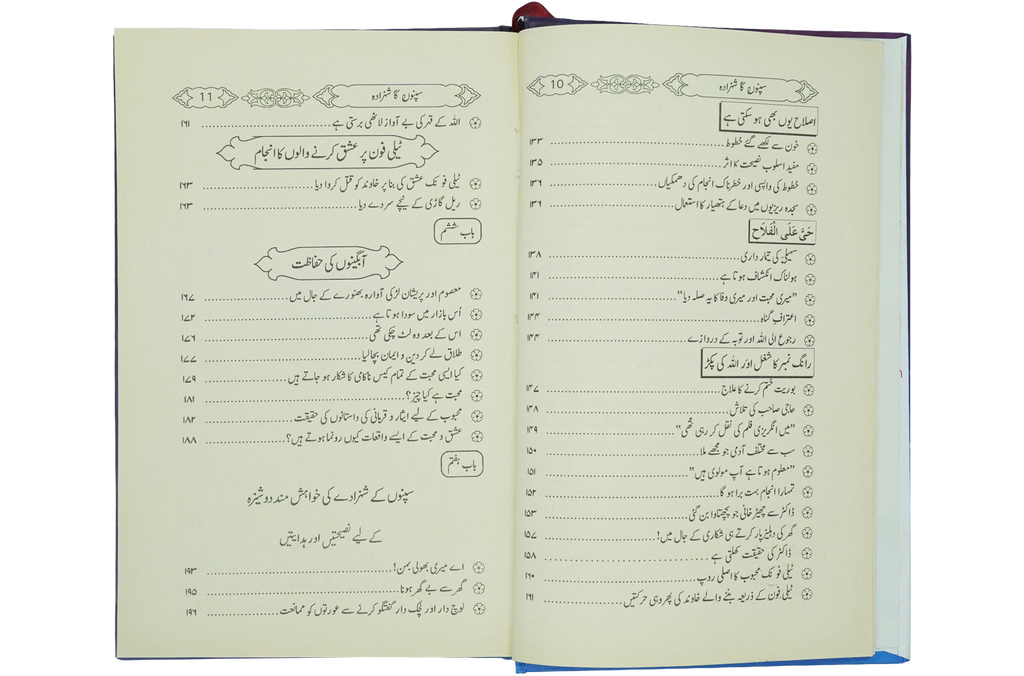 10 سپنوں کا شہزادہ
اصلاح یوں بھی ہو سکتی ہے
خون سے لکھے گئے خطوط ۱۳۳
مفید اسلوب نصیحت کا اثر ۱۳۵
خطوط کی واپسی اور خطرناک انجام کی دھمکیاں ۱۳۶
سجدہ ریزیوں میں دعا کے ہتھیار کا استعمال ۱۳۶
حَیَّ عَلَی الْفَلَاح
سہیلی کی تیمار داری ۱۳۸
ہولناک انکشاف ہوتا ہے ۱۴۱
"میری محبت اور میری وفا کا یہ صلہ دیا" ۱۴۱
اعترافِ گناہ ۱۴۴
رجوع الی اللہ اور توبہ کے دروازے ۱۴۴
رانگ نمبر کا شغل اور اللہ کی پکڑ
بوریت ختم کرنے کا علاج ۱۴۷
حاجی صاحب کی تلاش ۱۴۸
"میں انگریزی فلم کی نقل کر رہی تھی" ۱۴۹
سب سے مختلف آدمی جو مجھے ملا ۱۵۰
"معلوم ہوتا ہے آپ مولوی ہیں" ۱۵۱
تمہارا انجام بہت برا ہو گا ۱۵۲
ڈاکٹر سے چھیڑ خانی جو پچھتاوا بن گئی ۱۵۳
گھر کی دہلیز پار کرتے ہی شکاری کے جال میں! ۱۵۷
ڈاکٹر کی حقیقت کھلتی ہے ۱۵۸
ٹیلی فونک محبوب کا اصلی روپ ۱۶۰
ٹیلی فون کے ذریعہ بننے والے خاوند کی پھر وہی حرکتیں ۱۶۱
11 سپنوں کا شہزادہ
اللہ کے قہر کی بے آواز لاٹھی برستی ہے ۱۶۱
ٹیلی فون پر عشق کرنے والوں کا انجام
ٹیلی فونک عشق کی بنا پر خاوند کو قتل کروا دیا ۱۶۳
ریل گاڑی کے نیچے سر دے دیا ۱۶۳
باب ششم
آبگینوں کی حفاظت
معصوم اور پریشان لڑکی آوارہ بھنورے کے جال میں ۱۶۷
اُس بازار میں سودا ہوتا ہے ۱۷۲
اس کے بعد وہ لٹ چکی تھی ۱۷۶
طلاق لے کر دین و ایمان بچا لیا ۱۷۷
کیا ایسی محبت کے تمام کیس ناکامی کا شکار ہو جاتے ہیں ۱۷۹
محبت ہے کیا چیز؟ ۱۸۱
محبوب کے لیے ایثار و قربانی کی داستانوں کی حقیقت ۱۸۲
عشق و محبت کے ایسے واقعات کیوں رونما ہوتے ہیں؟ ۱۸۸
باب ہفتم
سپنوں کے شہزادے کی خواہش مند دوشیزہ
کے لیے نصیحتیں اور ہدایتیں
اے میری بھولی بہن! ۱۹۳
گھر سے بے گھر ہونا ۱۹۵
لوچ دار اور لچک دار گفتگو کرنے سے عورتوں کو ممانعت ۱۹۶